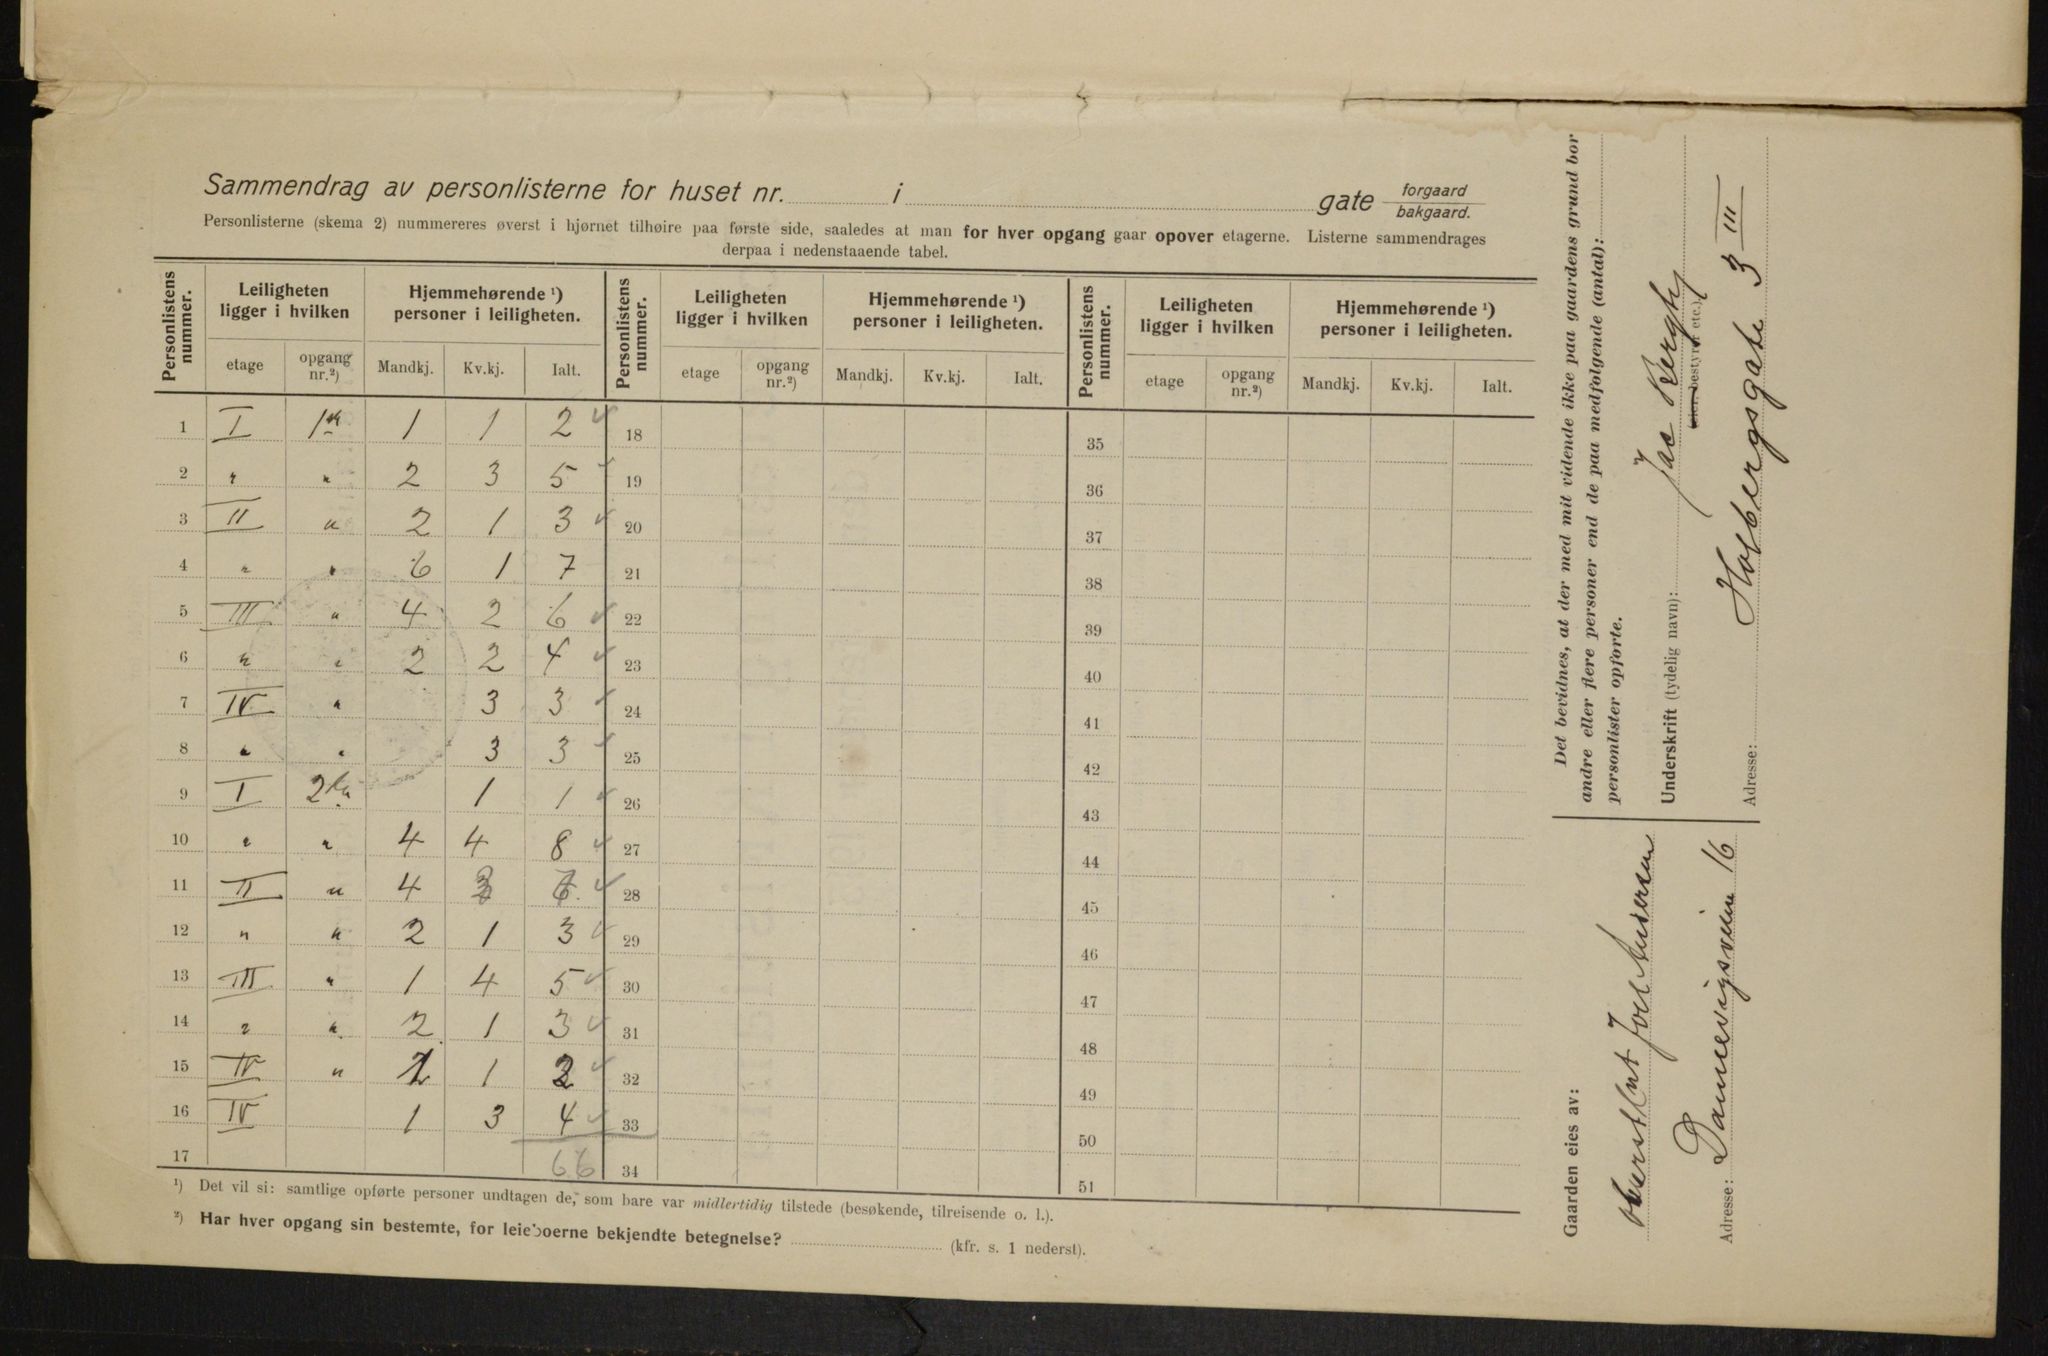 Sammendrag av personlisterne for huset nr. i gate forgaard bakgaard.
Personlisterne (skema 2) nummereres øverst i hjørnet tilhøire paa første side, saaledes at man for hver opgang gaar opover etagerne. Listerne sammendrages
derpaa i nedenstaaende tabel.
Personlistens nummer. Leiligheten ligger i hvilken Hjemmehørende ¹) personer i leiligheten. Personlistens nummer. Leiligheten ligger i hvilken Hjemmehørende ¹) personer i leiligheten. Personlistens nummer. Leiligheten ligger i hvilken Hjemmehørende ¹) personer i leiligheten.
etage opgang nr.²) Mandkj. Kv.kj. Ialt. etage opgang nr.²) Mandkj. Kv.kj. Ialt. etage opgang nr.²) Mandkj. Kv.kj. Ialt.
1 I 1 1 2 18 35
2 " " 2 3 5 19 36
3 II " 2 1 3 20 37
4 " " 6 1 7 21 38
5 III " 4 2 6 22 39
6 " " 2 2 4 23 40
7 IV " 3 3 24 41
8 " " 3 3 25 42
9 I 1 1 26 43
10 " " 4 4 8 27 44
11 II " 4 28 45
12 " " 2 1 3 29 46
13 III " 1 4 5 30 47
14 " " 2 1 3 31 48
15 IV " 1 1 2 32 49
16 IV 1 3 4 33 50
17 66 34 51
¹) Det vil si: samtlige opførte personer undtagen de, som bare var midlertidig tilstede (besøkende, tilreisende o. l.).
²) Har hver opgang sin bestemte, for leieboerne bekjendte betegnelse? (kfr. s. 1 nederst).
Det bevidnes, at der med mit vidende ikke paa gaardens grund bor
andre eller flere personer end de paa medfølgende (antal):
personlister opførte.
Underskrift (tydelig navn): Jac Bergh
eier, bestyrer etc.)
Adresse: Holbergsgate 3 III
Gaarden eies av:
Joel Andersen
Adresse: Dannevigsveien 16